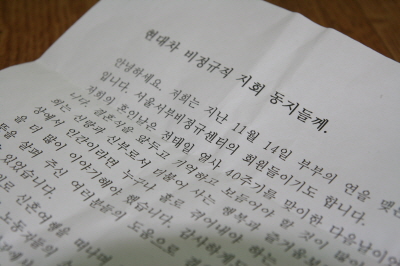 현대차 비정규직 지회 동지들께.
안녕하세요. 저희는 지난 11월 14일 부부의 연을 맺은
입니다. 서울서부비정규센터의 회원들이기도 합니다.
저희의 혼인날은 전태일 열사 40주기를 맞이한 다음날이었
니다. 결혼식을 앞두고 기억하고 보듬어야 할 것이 많았
희는 신랑과 신부로서 더불어 사는 행복과 즐거움보
상에서 인간이라면 누구나 홀로 쥐이네야 하는
을 더 많이 이야기해야 했습니다. 감사하게
뜻을 살며 주신 여러분들의 도움으로 결
수 있었습니다.
로 신혼여행을 떠나며
노동자들의